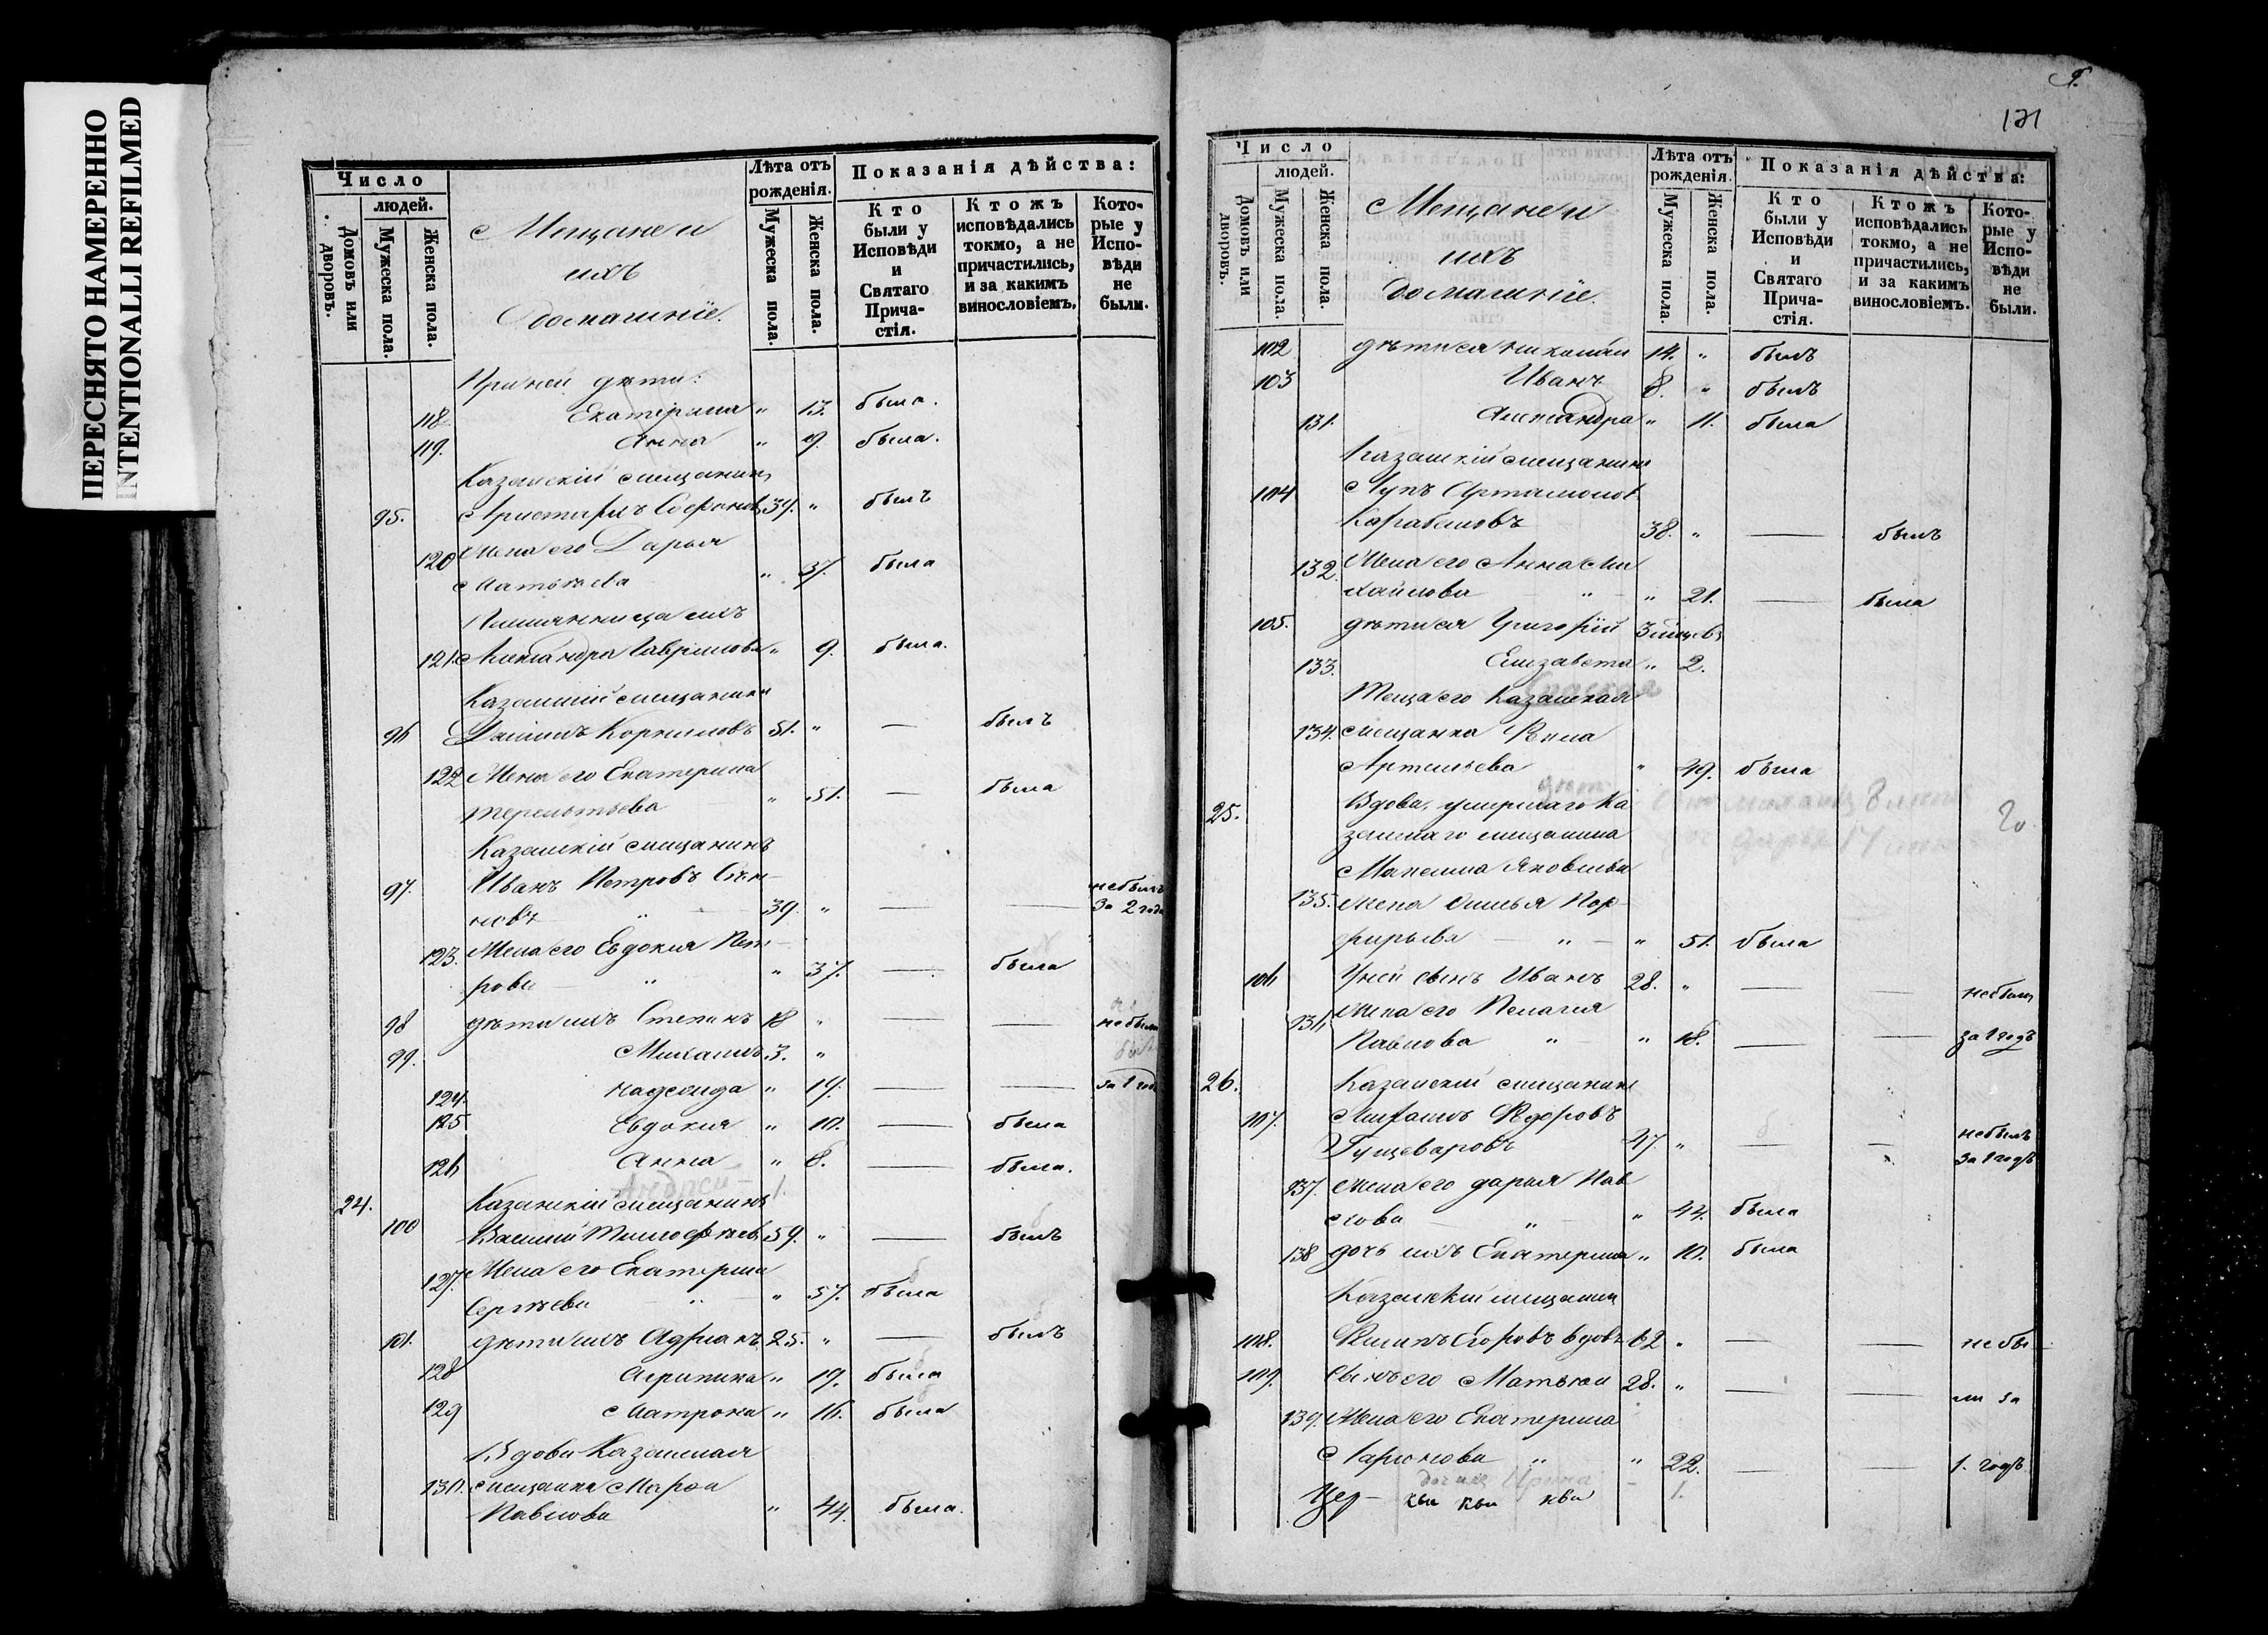 ПЕРЕСНЯТО НАМЕРЕННО
INTENTIONALLI REFILMED
Число
людей.
Домовъ или дворовъ.
Мужеска пола.
Женска пола.
Мещане и
ихъ
домашніе.
Лѣта отъ рожденія.
Мужеска пола.
Женска пола.
Показанія дѣйства:
Кто были у Исповѣди и Святаго Прича-стія.
Ктожъ исповѣдались токмо, а не причастились, и за какимъ винословіемъ.
Кото-рые у Испо-вѣди не были.
При ней дѣти:
118. Екатерина " 13. была.
119. Анна " 9. была.
Казанскій мещанинъ
95. Аристархъ 39. " былъ
120 Жена его Дарья
Матвѣева " 37. была
Племянница ихъ
121. Александра Гаврилова " 9. была.
Казанскій мещанинъ
96 Даніилъ Корниловъ 51. " — былъ
122 Жена его Екатерина
Терентьева " 51. — была
Казанскій мещанинъ
97. Иванъ Петровъ
новъ " 39. " — — небылъ за 2 года
123. Жена его Евдокія Пет-
рова " " 37. — была
98 дѣти ихъ Степанъ 18 " — — небылъ
99. Михаилъ 3. "
124. Надежда " 19. — — за 1 годъ
125 Евдокія " 10. — была
126 Анна " 8. — была.
24. Казанскій мещанинъ
100 Василій 59. " — былъ
127. Жена его Екатерина
Сергѣева " " 57. была
101. дѣти ихъ Адріанъ 25. " — былъ
128 Агрипина " 19. была
129 Матрона " 16. была
Вдова Казанская
130. мещанка Марѳа
Павлова " 44. была.
131
Число
людей.
Домовъ или дворовъ.
Мужеска пола.
Женска пола.
Мещане и
ихъ
домашніе.
Лѣта отъ рожденія.
Мужеска пола.
Женска пола.
Показанія дѣйства:
Кто были у Исповѣди и Святаго Прича-стія.
Ктожъ исповѣдались токмо, а не причастились, и за какимъ винословіемъ.
Кото-рые у Испо-вѣди не были.
102 дѣти ея Николай 14. " былъ
103 Иванъ 8. " былъ
131. Александра " 11. была
Казанскій мещанинъ
104 Лупъ Артамонов
Карабановъ 38. " — былъ
132. Жена его Анна Ми
хайлова " " 21. — была
105. дѣти ея Григорій
133. Елизавета " 2.
Теща его Казанская
134. мещанка
Артемьева " 49. была
25. Вдова, умершаго Ка
занскаго мещанина
Максима Яковлева
135. жена Пор-
фирьева " " 51. была
106 У ней сынъ Иванъ 28. " — — небылъ
136 Жена его Пелагія
Павлова " " 18. — — за 1 годъ
26. Казанскій мещанинъ
107. Ѳедоровъ
47. " — — небылъ за 1 годъ
137. жена его Дарья Пав
лова " " 44. была
138 дочь ихъ Екатерина " 10. была
Казанскій мещанинъ
108. Филипъ Егоровъ вдовъ 62 " — — не бы
109. Сынъ его Матвѣй 28. " — — ли за
139. Жена его Екатерина
Ларіонова " " 22. — — 1. годъ
дочь их Ирина 1.